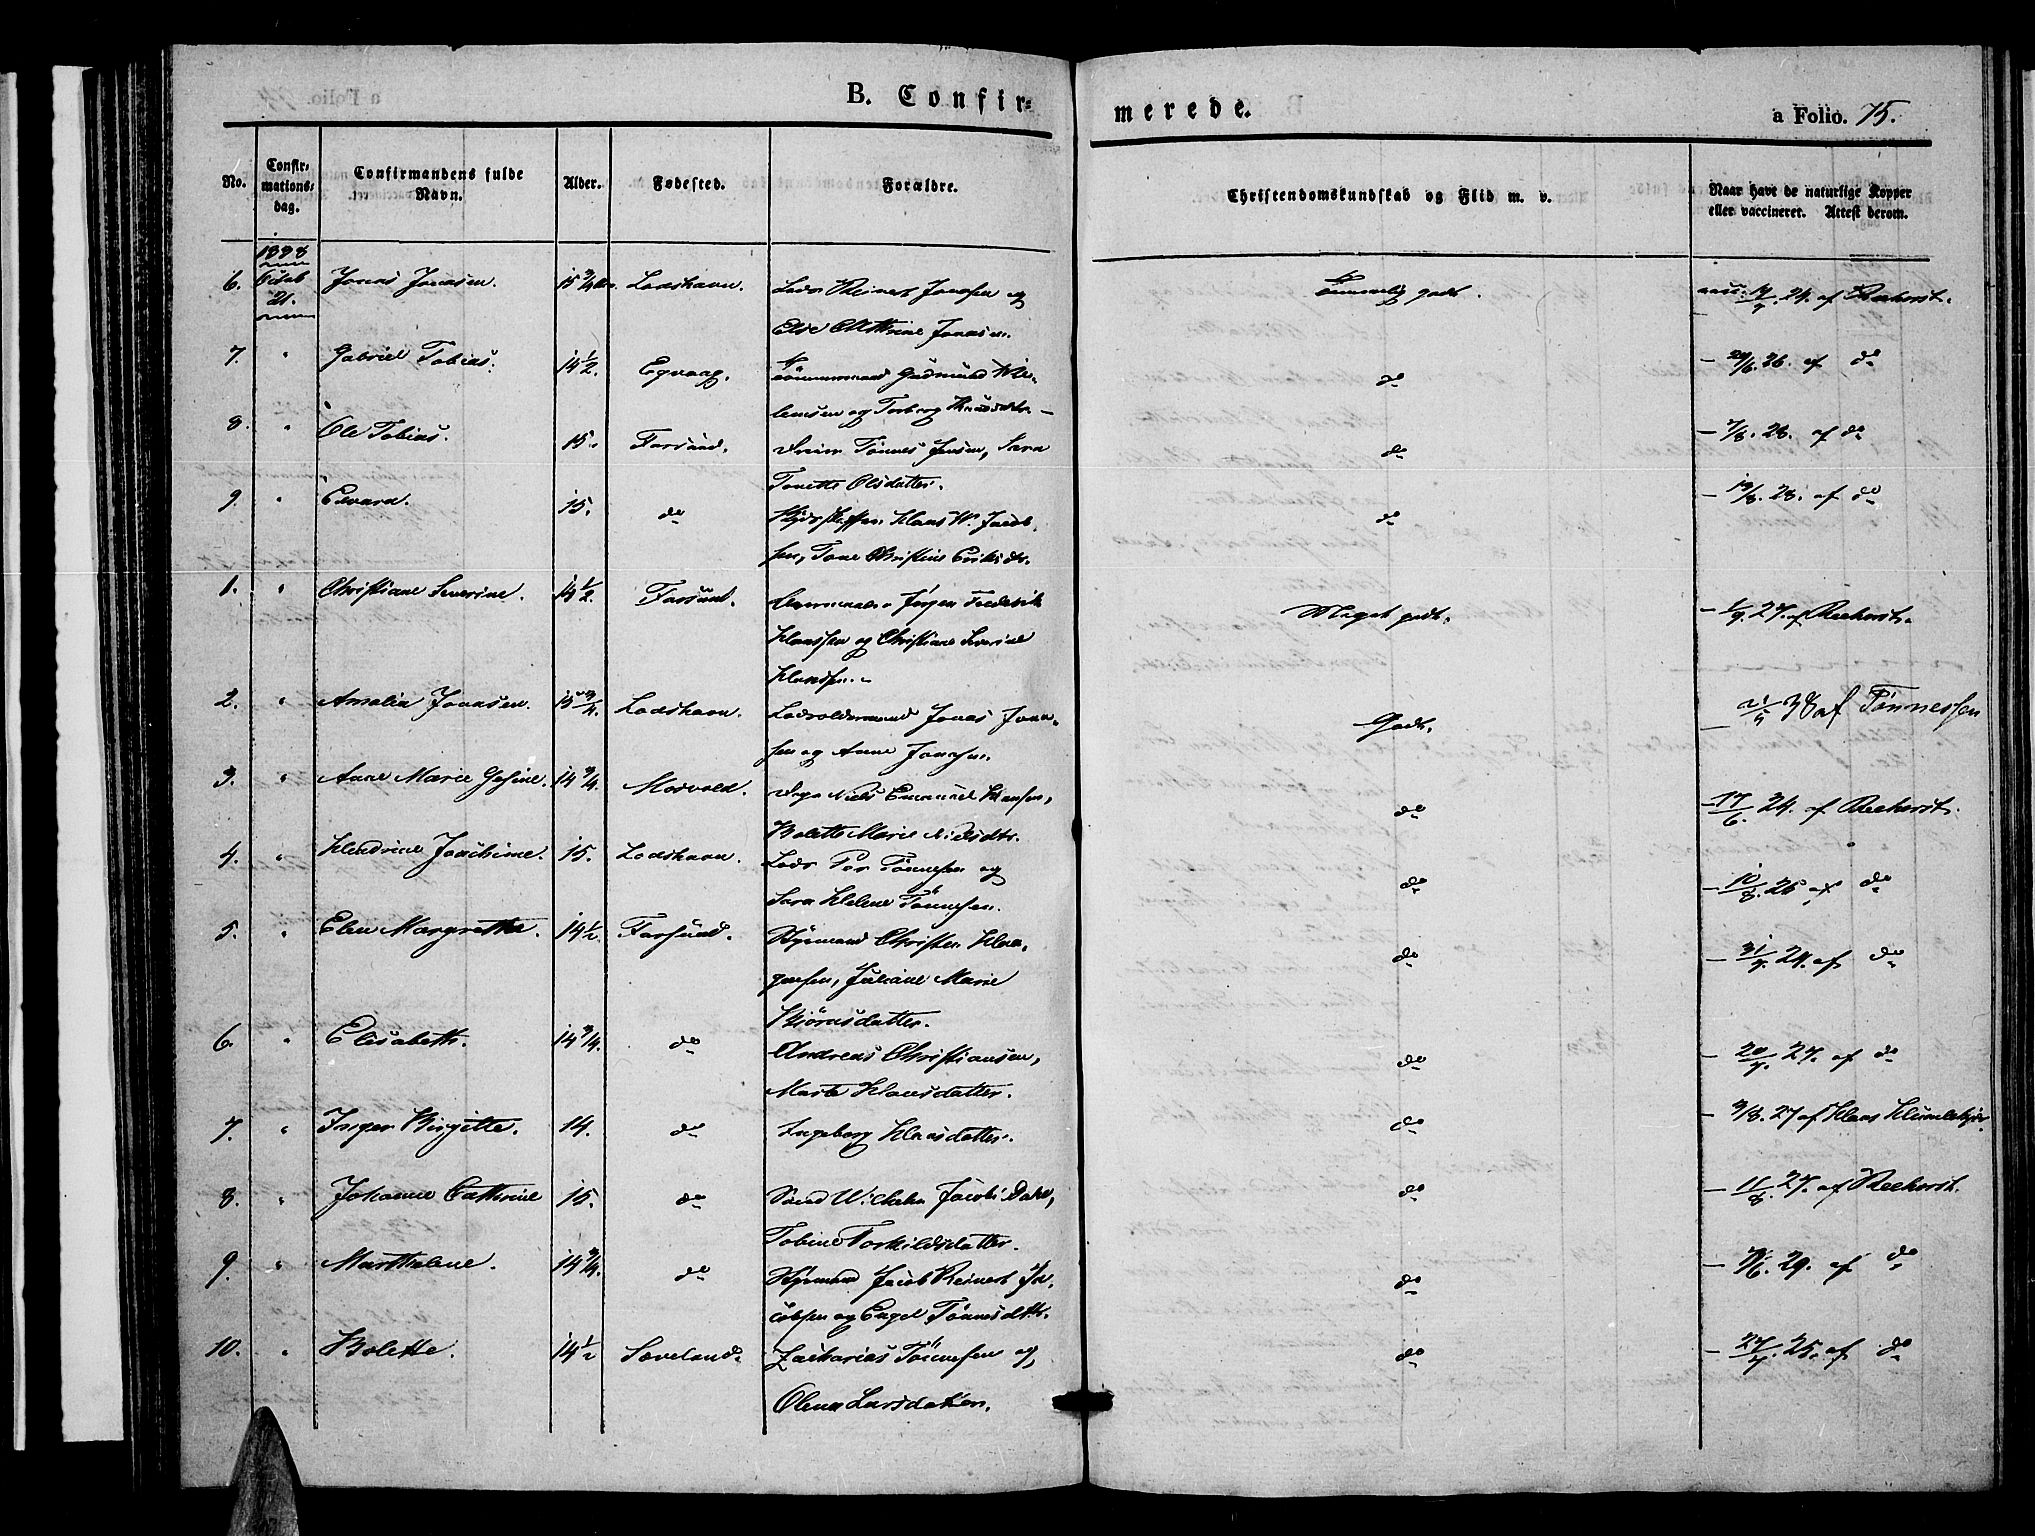 B. Confir-
merede.
a Folio. 75.
No.
Confir-
mations-
dag.
Confirmandens fulde
Navn.
Alder.
Fødested.
Forældre.
Christendomskundskab og Flid m. v.
Naar have de naturlige Kopper
eller vaccineret. Attest derom.
1838
6. Octob Jonas Jonasen. 15 3/4 Lodshavn. Lods Reinert Jonasen og
21.
Else Cathrine Jonasen.
Temmelig godt.
14/7 24. af Reehorst.
7. " Gabriel Tobias. 14 1/2. Egvaag. Tømmermand Gudmund Wil-
lumsen og Torborg
do
6. 26. af do
8. " Ole Tobias. 15. Farsund. Tønnes Jensen, Sara
Tonette Olsdatter.
do
7/8. 28. af do
9. " Edvard. 15. do Klaas W. Jacob-
sen, Tone Christine Eriksdtr.
do
19/8. 28. af do
1. " Christiane Severine. 14 1/2. Farsund. Jørgen Frederik
Klaassen og Christiane Severine
Klaassen.
Meget godt.
1/9. 27. af Reehorst.
2. " Amalia Jonasen. 15 3/4. Lodshavn. Lodsoldermand Jonas Jona-
sen og Anne Jonasen.
Godt.
38 af Tønnessen
3. " Anne Marie Gesine. 14 3/4. Niels Emanuel Hansen,
Bolette Marie Nielsdtr.
do
17/6. 24. af Reehorst.
4. " Hendrine Joachime. 15. Lodshavn. Lods Per Tønnesen og
Sara Helene Tönnesen.
do
10/8. 25 af do
5. " Elen Margrethe. 14 1/2. Farsund. Styrmand Christen Klau-
sen, Juliane Marie
Biörnsdatter.
do
31/7. 24. af do
6. " Elisabeth. 14 3/4. do Andreas Christiansen,
Marte Klausdatter.
do
20/7. 27. af do
7. " Inger Birgitte. 14. do Ingeborg Klausdatter.
do
3/8. 27 af Klaas
8. " Johanne Cathrine 15. do Wilhelm Jacobi Dahl,
Tobine Torkildsdatter.
do
11/8. 27. af Reehorst.
9. " Marthalene. 14 3/4. do Styrmand Jacob Reinert Ja-
cobsen og Engel Tønnesdtr.
do
29. af do
10. " Bolette. 14 1/2 Zacharias Tönnesen og
Olene Larsdatter.
do
27/7. 25. af do